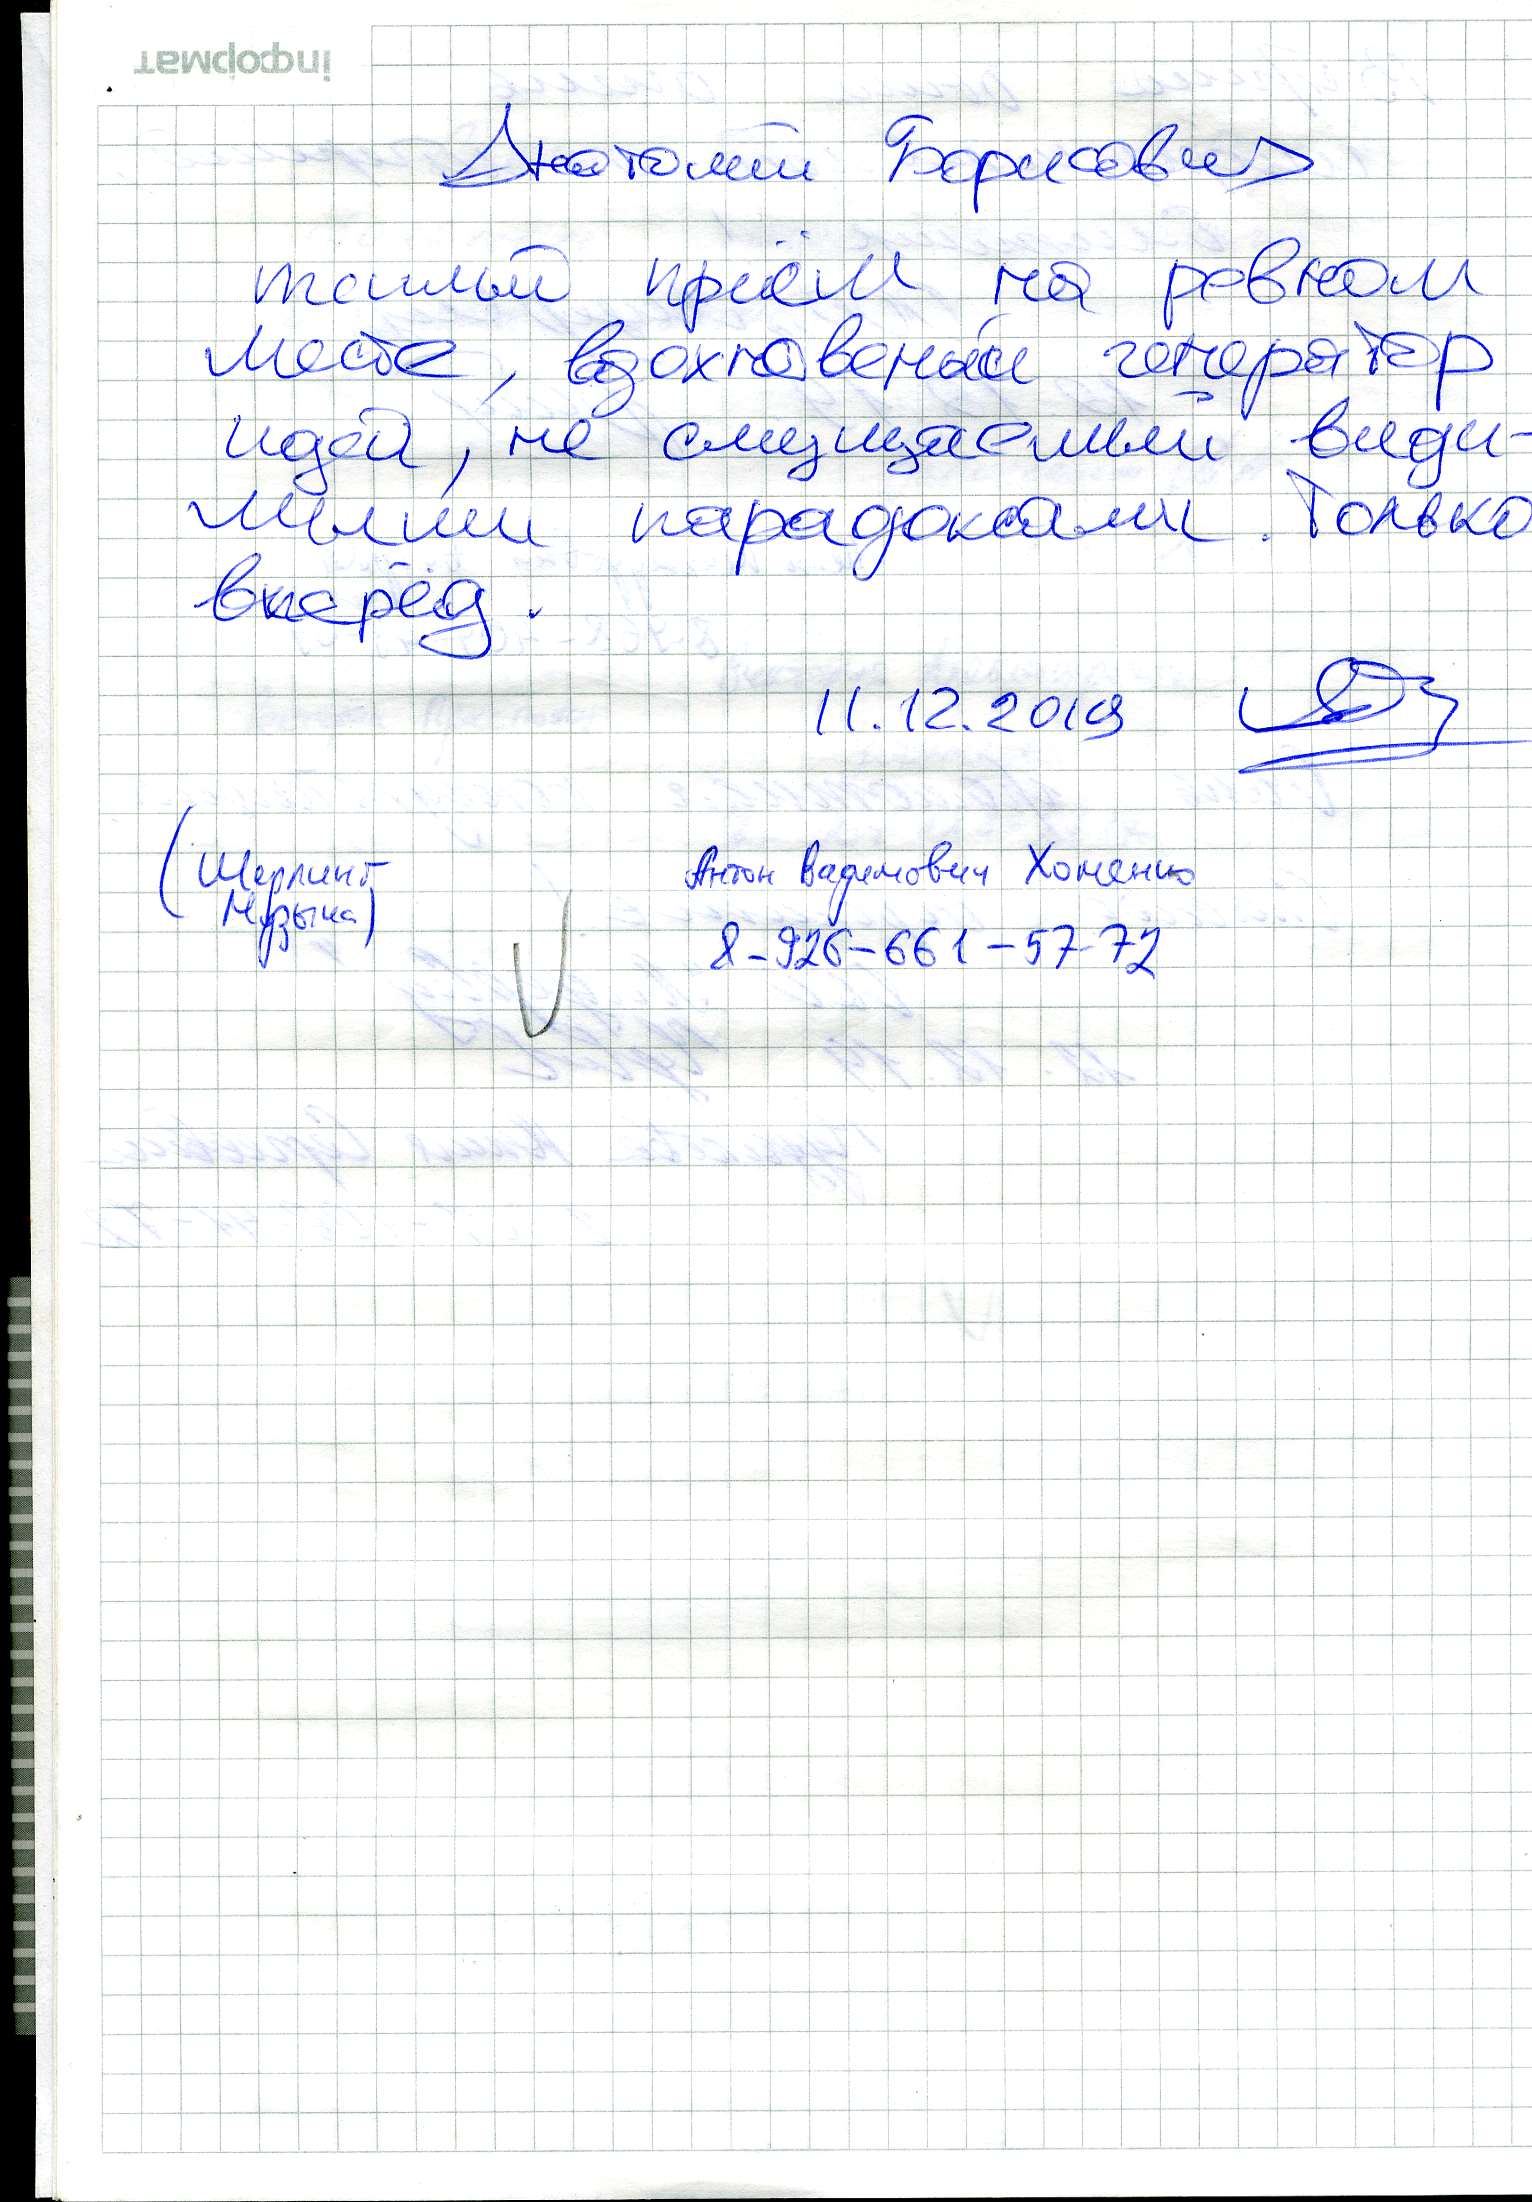 iнформат
Анатолий Борисович
тёплый приём на ровном
месте, вдохновеный генератор
идей, не смущаемый види-
мыми парадоксами. Только
вперёд.
11.12.2019
(Шерлинг
Музыка)
Антон Вадимович Хоменко
8-926-661-57-72